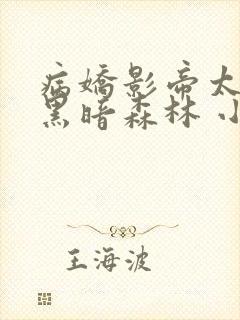 病嬌影帝太
黑暗森林 小
王海波